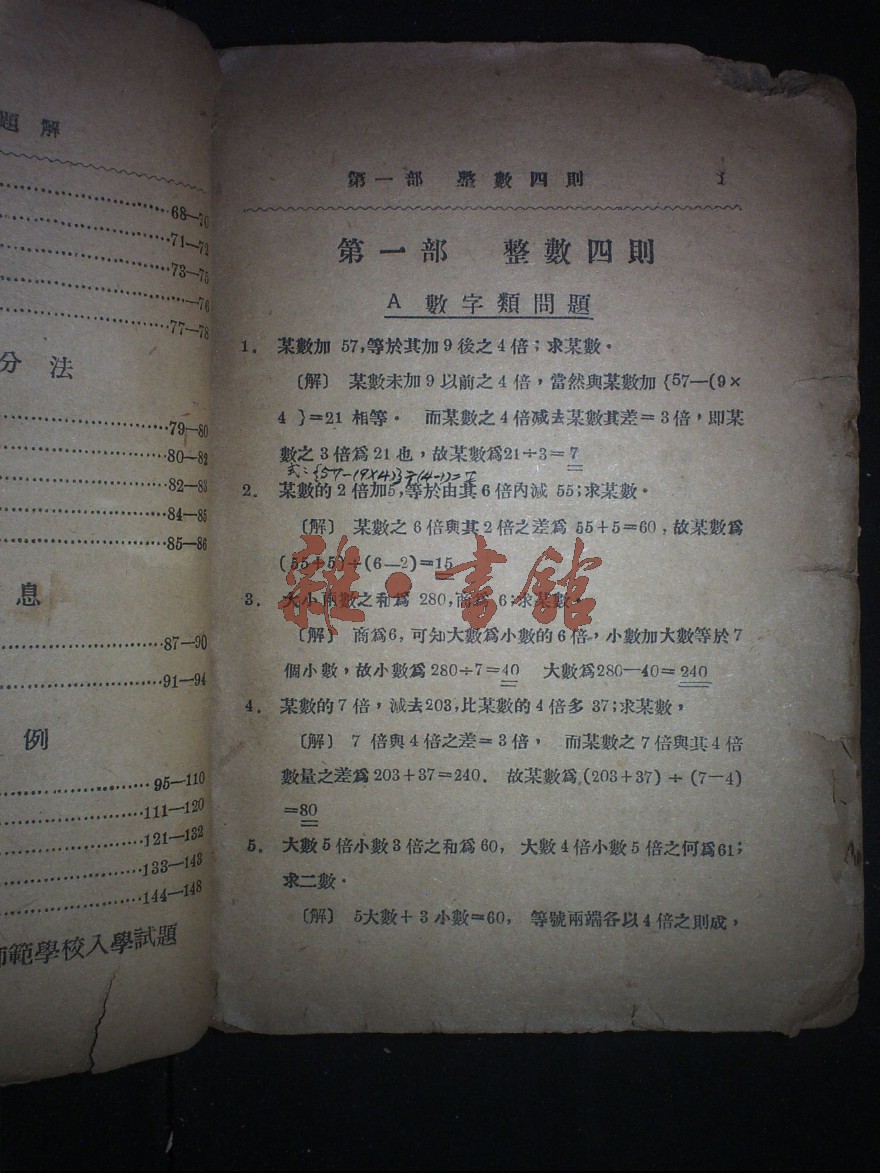 題解
68—70
71—72
73—75
—76
77—78
分法
79—80
80—82
82—83
84—85
85—86
息
87—90
91—94
例
95—110
111—120
121—132
133—143
144—148
師範學校入學試題
第一部 整數四則 1
第一部 整數四則
A 數字類問題
1. 某數加 57,等於其加9後之4倍;求某數。
〔解〕 某數未加9以前之4倍,當然與某數加{57—(9×
4 }=21 相等。 而某數之4倍減去某數其差=3倍,即某
數之3倍爲21也,故某數爲21÷3=7
式:{57-(9×4)}÷(4-1)=7
2. 某數的2倍加5,等於由其6倍內減 55;求某數。
〔解〕 某數之6倍與其2倍之差爲 55+5=60,故某數爲
(55+5)÷(6—2)=15
3. 大小兩數之和爲 280,商爲6;求某數。
〔解〕 商爲6,可知大數爲小數的6倍,小數加大數等於7
個小數,故小數爲280÷7=40 大數爲280—40=240
4. 某數的7倍,減去203,比某數的4倍多 37;求某數,
〔解〕 7 倍與4倍之差=3倍, 而某數之7倍與其4倍
數量之差爲203+37=240. 故某數爲(203+37)÷(7—4)
=80
5. 大數5倍小數3倍之和爲60, 大數4倍小數5倍之何爲61;
求二數。
〔解〕 5大數+3小數=60, 等號兩端各以4倍之則成,
雜·書館